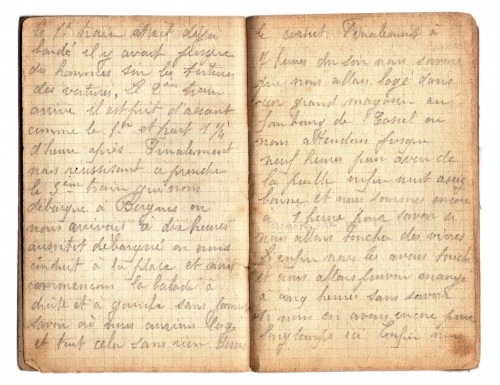 le 1er train était déjà
bondé il y avait jusque
des hommes sur les toitures
des voitures. Le 2ème train
arrive il est prit d'assaut
comme le 1er et part 1/4
d'heure après. Finalement
nous reussisont a prendre
le 3ème train qui nous
débarque à Bergues ou
nous arrivons à dix heures
aussitot débarqué on nous
conduit à la place et nous
commencons la balade à
droite et à gauche sans
savoir où nous avions logé
et tout cela sans rien dans
le Finalement à
7 heures du soir nous savons
que nous allons logé dans
un grand magasin au
faubourg de Cassel ou
nous attendons jusque
neuf heures pour avoir de
la paille enfin nuit assez
bonne et nous sommes encore
à 1 heure pour savoir si
nous allons touché des vivres
enfin nous les avons touché
et nous allons pouvoir mangé
à cinq heures sans savoir
si nous en avons encore pour
longtemps ici. Enfin